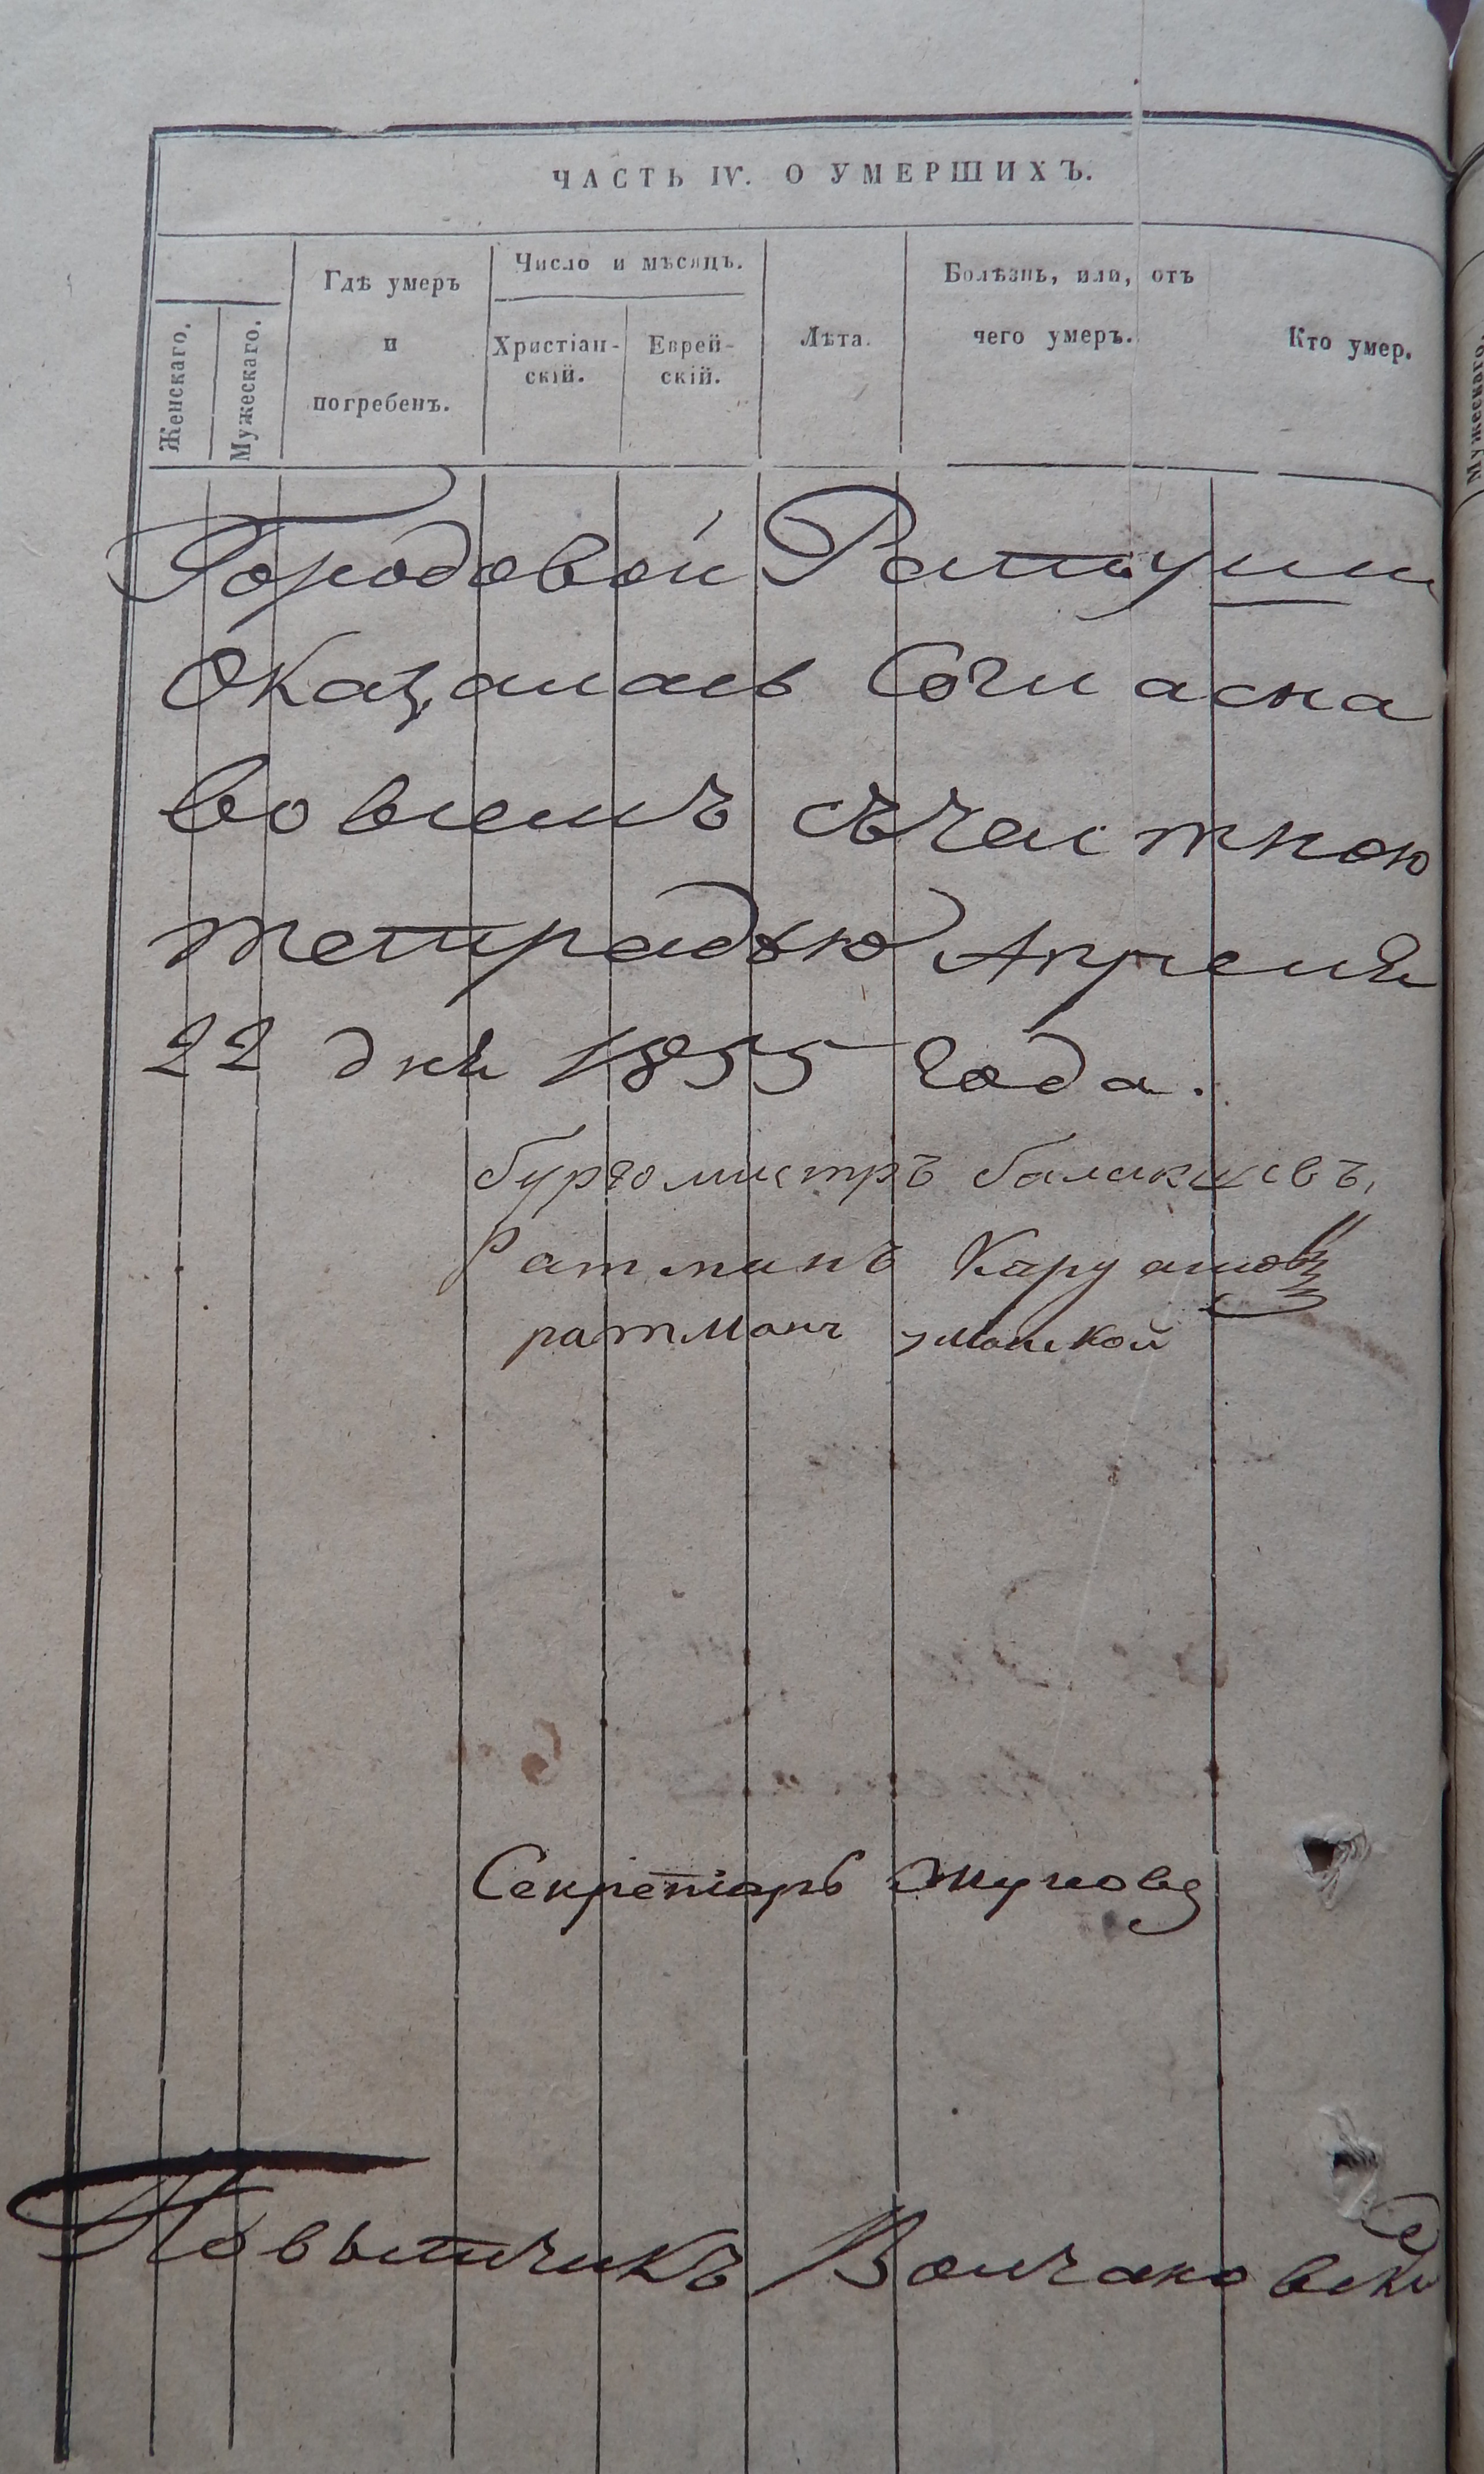 ЧАСТЬ IV. О УМЕРШИХЪ.
Женскаго.
Мужескаго.
Гдѣ умеръ
и
погребенъ.
Число и мѣсяцъ.
Христіан-
скій.
Еврей-
скій.
Лѣта.
Болѣзнь, или, отъ
чего умеръ.
Кто умер.
Городовой Ратуши
Оказалась Согласна
во всемъ съ частною
тетрадью Апреля
22 дня 1855 года.
бургомистръ
Ратманъ
ратманъ
Секретарь Жуковъ
Повытчикъ
Мужескаго.